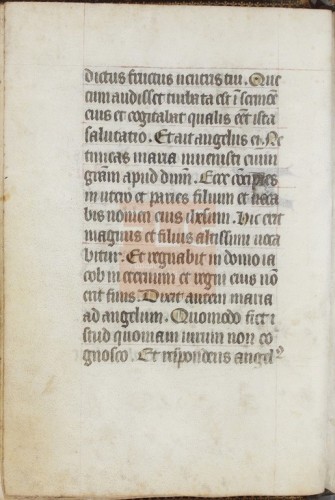 dictus fructus uentris tui. Que
cum audisset turbata est i sermōe
eius et cogitabat qualis eēt ista
salutatio. Et ait angelus ei. Ne
timeas maria inuenisti enim
grām apud dnm. Ecce cōcipies
in utero et paries filium et uoca
bis nomen eius ihesum. Hic erit
magnus et filius altissimi uoca
bitur. Et regnabit in domo ia
cob in eternum et regni eius nō
erit finis. Dixit autem maria
ad angelum. Quomodo fiet i
stud quoniam uirum non co
gnosco. Et respondens angelꝰ